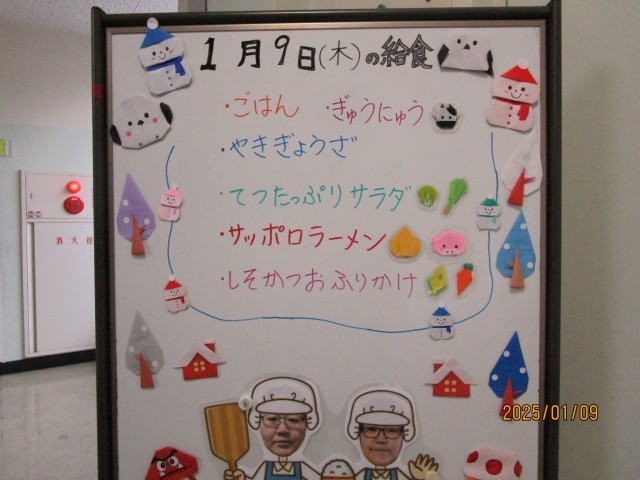 1月9日(木)の給食
・ごはん ・ぎゅうにゅう
・やきぎょうざ
・てつたっぷりサラダ
・サッポロラーメン
・しそかつおふりかけ
消火栓
2025/01/09